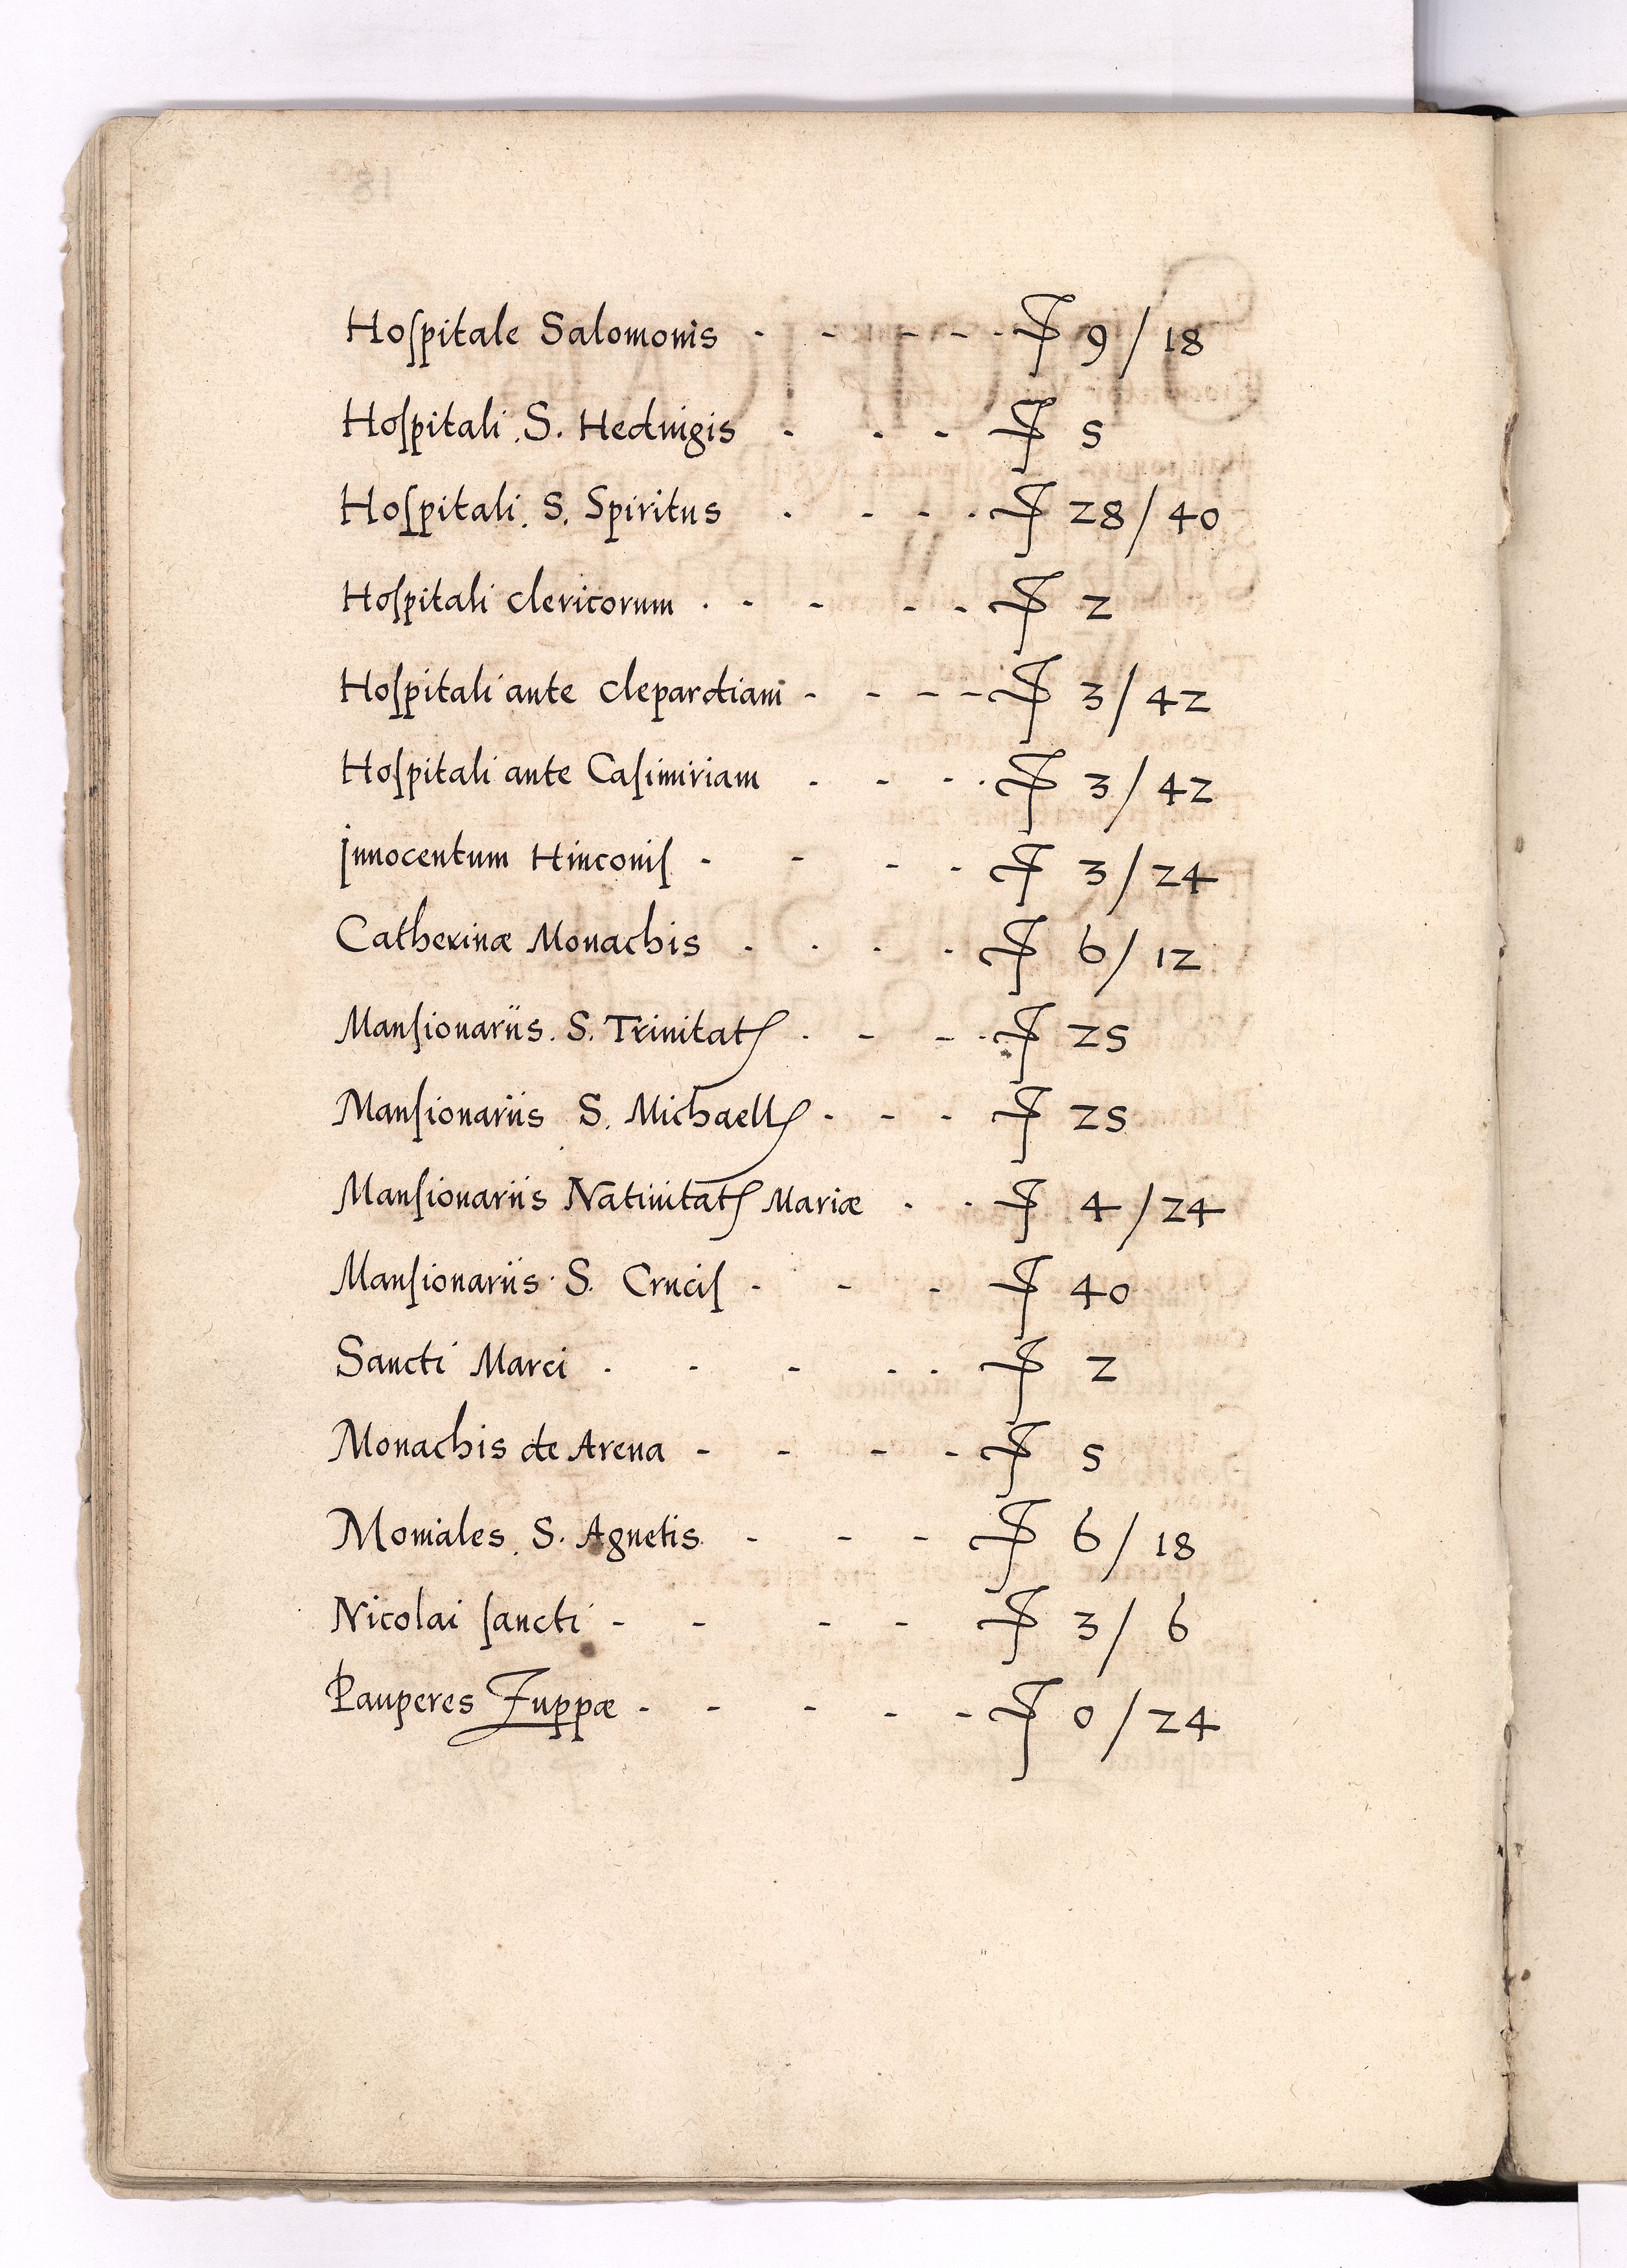 Hoſpitale Salomonis - - - - - F 9 / 18
Hoſpitali . S. Heduigis - - - F 5
Hoſpitali . S. Spiritus - - - - F 28 / 40
Hoſpitali clericorum . - - - - F 2
Hoſpitali ante clepardiam - - - - F 3 / 42
Hoſpitali ante Caſimiriam - - - - F 3 / 42
Innocentum Hinconiſ - - - - F 3 / 24
Catherinæ Monachis - - - - F 6 / 12
Manſionariis . S. Trinitatꝭ - - - - F 25
Manſionariis S. Michaelꝭ - - - F 25
Manſionariis Natiuitatꝭ Mariæ - - F 4 / 24
Manſionariis . S. Cruciſ - - - F 40
Sancti Marci . - - - - F 2
Monachis de Arena - - - - F 5
Moniales . S. Agnetis . - - - F 6 / 18
Nicolai ſancti - - - - F 3 / 6
Pauperes Zuppæ - - - - - F 0 / 24